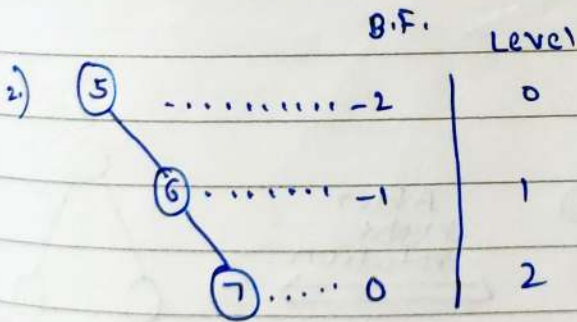 B.F. Level
2.) 5 ........... -2 0
6 ........ -1 1
7 ..... 0 2